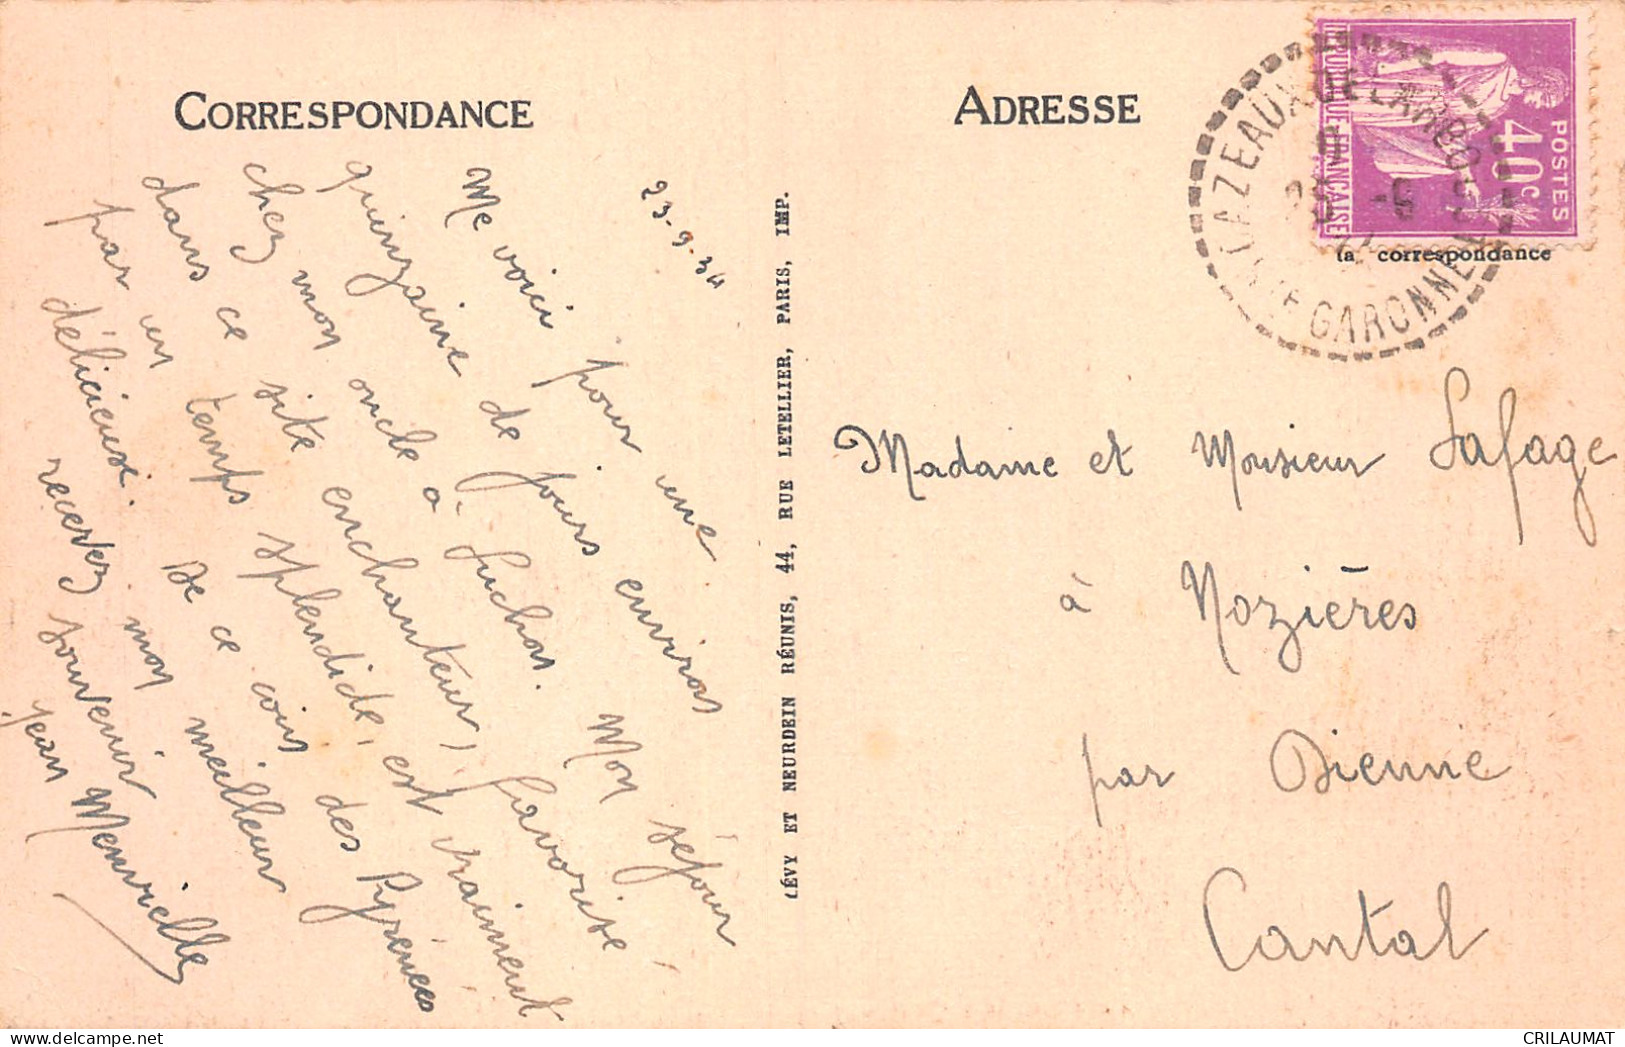 CORRESPONDANCE
23-9-34
Me voici pour une
quinzaine de jours environ
chez mon oncle à Luchon. Mon séjour
dans ce site enchanteur, favorisé
par un temps splendide, est vraiment
délicieux. De ce coin des Pyrénées
recevez mon meilleur
souvenir
Jean
LÉVY ET NEURDEIN RÉUNIS, 44, RUE LETELLIER, PARIS, IMP.
ADRESSE
RÉPUBLIQUE FRANÇAISE
POSTES
40c
CAZEAUX DE LARBOUST
HTE GARONNE
la correspondance
Madame et Monsieur Lafage
à Nozières
par Dienne
Cantal
CRILAUMAT